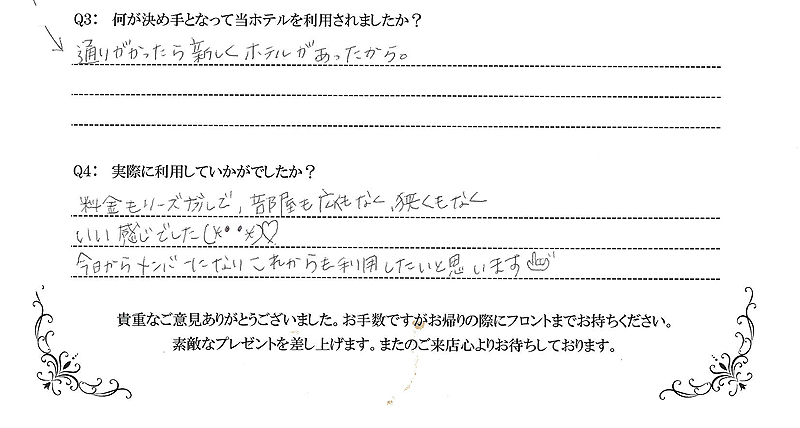 Q3: 何が決め手となって当ホテルを利用されましたか?
通りがかったら新しくホテルがあったから。
Q4: 実際に利用していかがでしたか?
料金もリーズナブルで、部屋も広くもなく、狭くもなく
いい感じでした(*••*)♡
今日からメンバーになりこれからも利用したいと思います
貴重なご意見ありがとうございました。お手数ですがお帰りの際にフロントまでお持ちください。
素敵なプレゼントを差し上げます。またのご来店心よりお待ちしております。